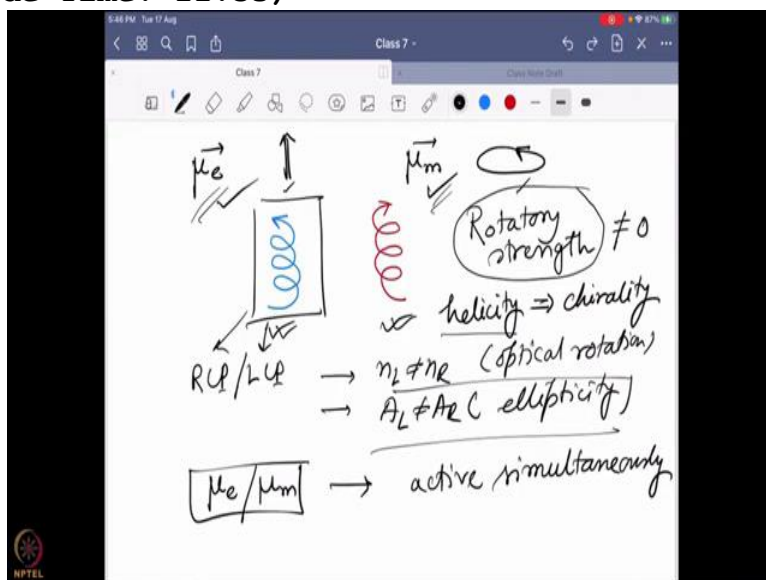 5:46 PM Tue 17 Aug
87%
Class 7
Class 7
Class Note Draft
T
μe μm
Rotatory
strength ≠ 0
helicity ⇒ chirality
RCP/LCP → nL ≠ nR (optical rotation)
→ AL ≠ AR (ellipticity)
μe/μm → active simultaneously
NPTEL